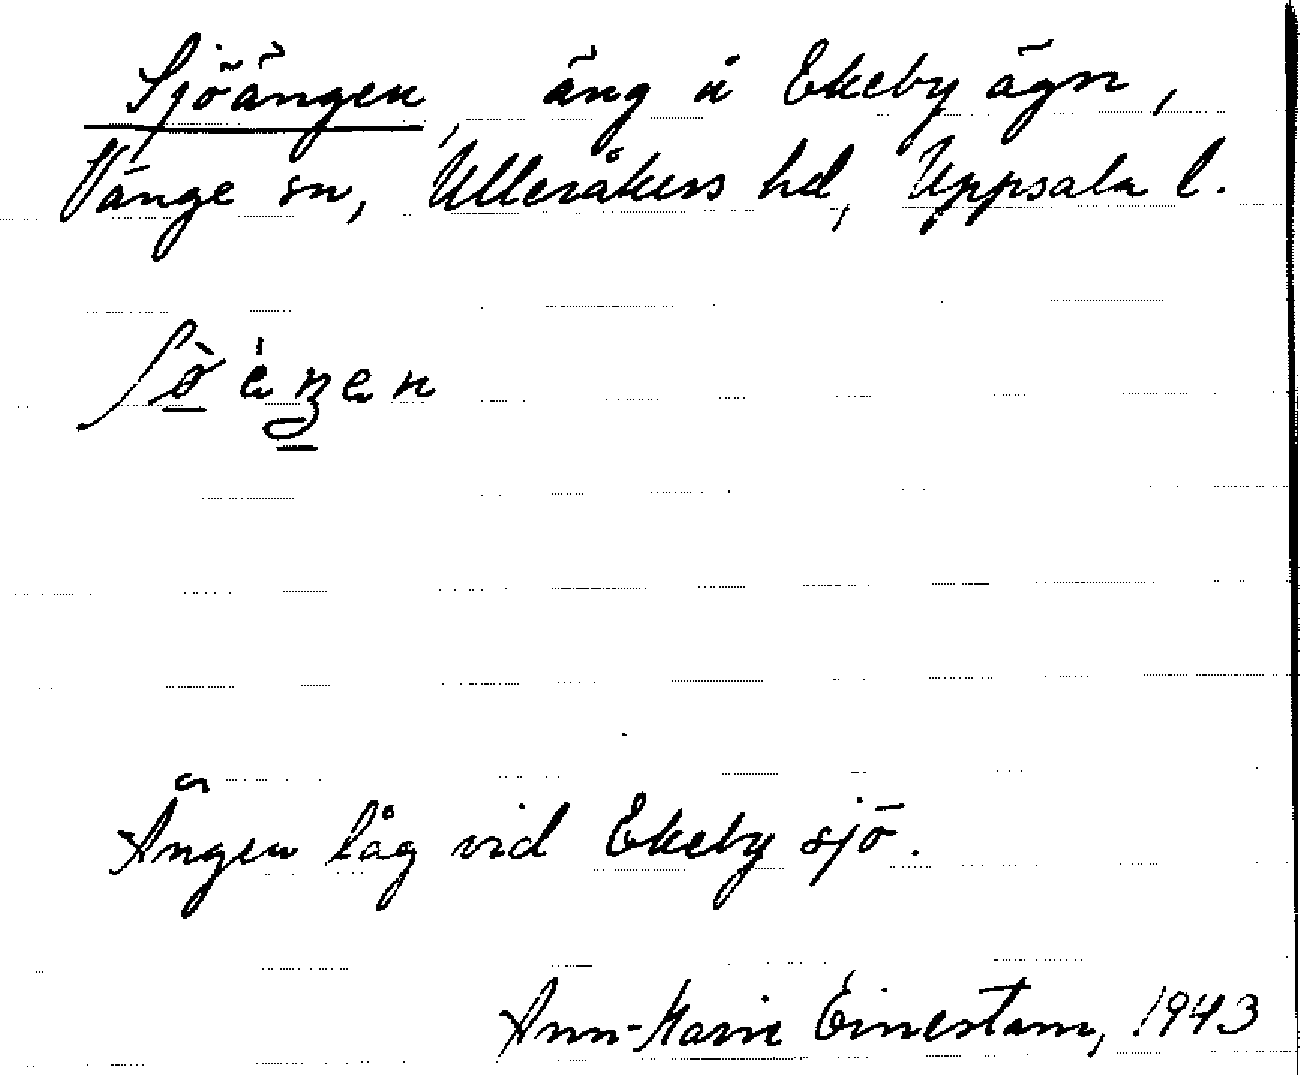 Sjöängen, äng å Ekeby ägn,
Vänge sn, Ulleråkers hd, Uppsala l.
Ängen låg vid Ekeby sjö.
Ann-Marie Einestam, 1943